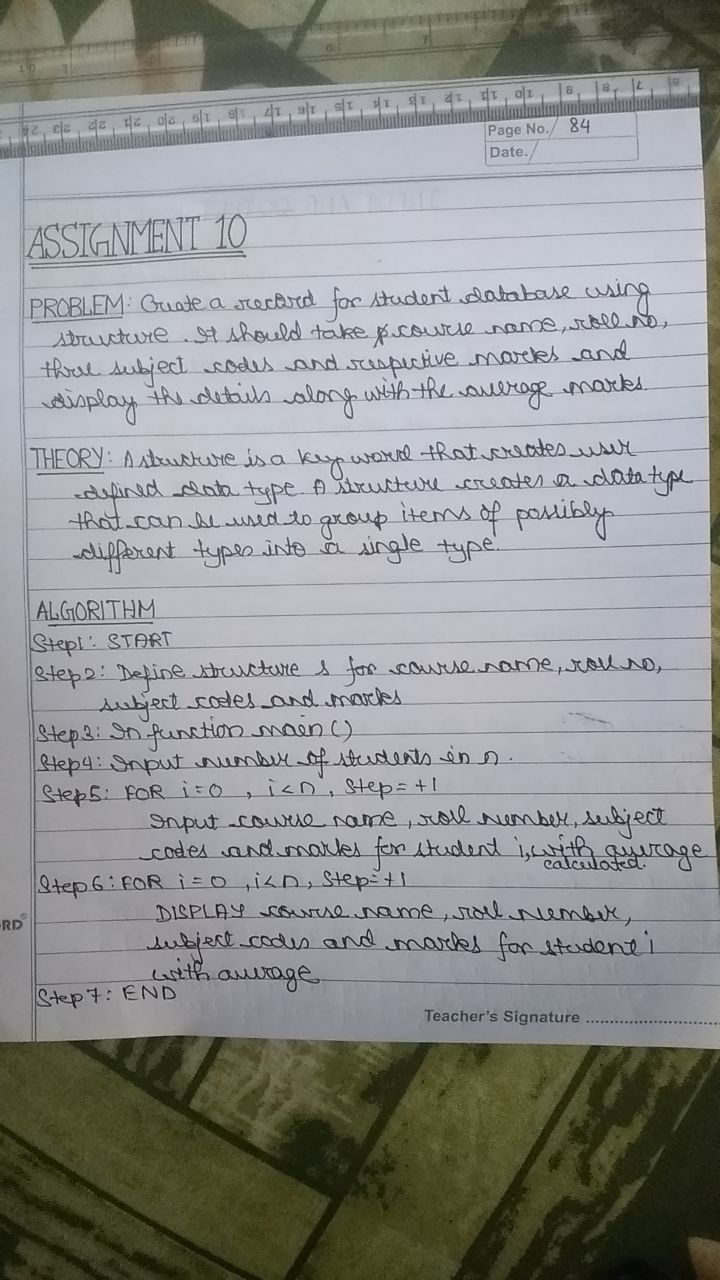 Page No. 84
Date.
ASSIGNMENT 10
PROBLEM: Create a record for student database using
structure. It should take course name, roll no,
three subject codes and respective marks and
display the details along with the average marks.
THEORY: A structure is a key word that creates user
defined data type. A structure creates a data type
that can be used to group items of possibly
different types into a single type.
ALGORITHM
Step1: START
Step2: Define structure s for course name, roll no,
subject codes and marks
Step3: In function main()
Step4: Input number of students in n.
Step5: FOR i=0, i<n, Step=+1
Input course name, roll number, subject
codes and marks for student i, with average
calculated.
Step6: FOR i=0, i<n, Step=+1
DISPLAY course name, roll number,
subject codes and marks for student i
with average
Step7: END
RD
Teacher's Signature ........................